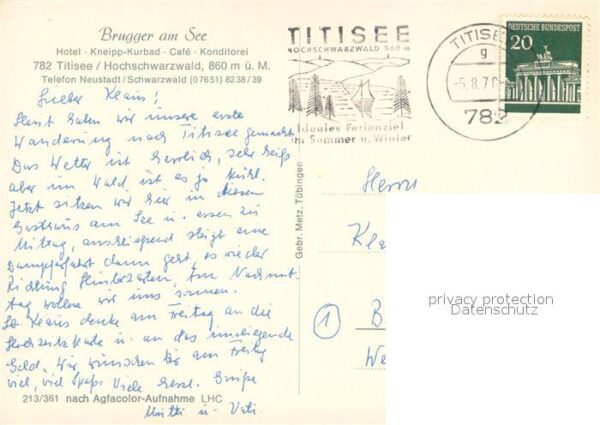 Brugger am See
Hotel - Kneipp-Kurbad - Café - Konditorei
782 Titisee / Hochschwarzwald, 860 m ü. M.
Telefon Neustadt / Schwarzwald (07651) 8238/39
Lieber Klaus!
Heut haben wir unsere erste
Wanderung nach Titisee gemacht.
Das Wetter ist herrlich, sehr heiß
aber im Wald ist es ja kühl.
Jetzt sitzen wir hier in diesem
Gasthaus am See u. essen zu
Mittag, anschließend steigt eine
Dampferfahrt dann geht es wieder
Richtung Hinterzarten, Am Nachmit
tag wollen wir uns sonnen.
Klaus denke am Freitag an die
Hochzeitskarte u. an das umliegende
Geld, Wir wünschen Dir am Freitag
viel, viel Spaß. Viele Herzl. Grüße
Mutti u. Vati.
213/361 nach Agfacolor-Aufnahme LHC
Gebr. Metz, Tübingen
TITISEE
HOCHSCHWARZWALD 860 m
Ideales Ferienziel
im Sommer u. Winter
TITISEE
g
-5.8.70
782
DEUTSCHE BUNDESPOST
20
Herrn
Kla
1 B
We
privacy protection
Datenschutz